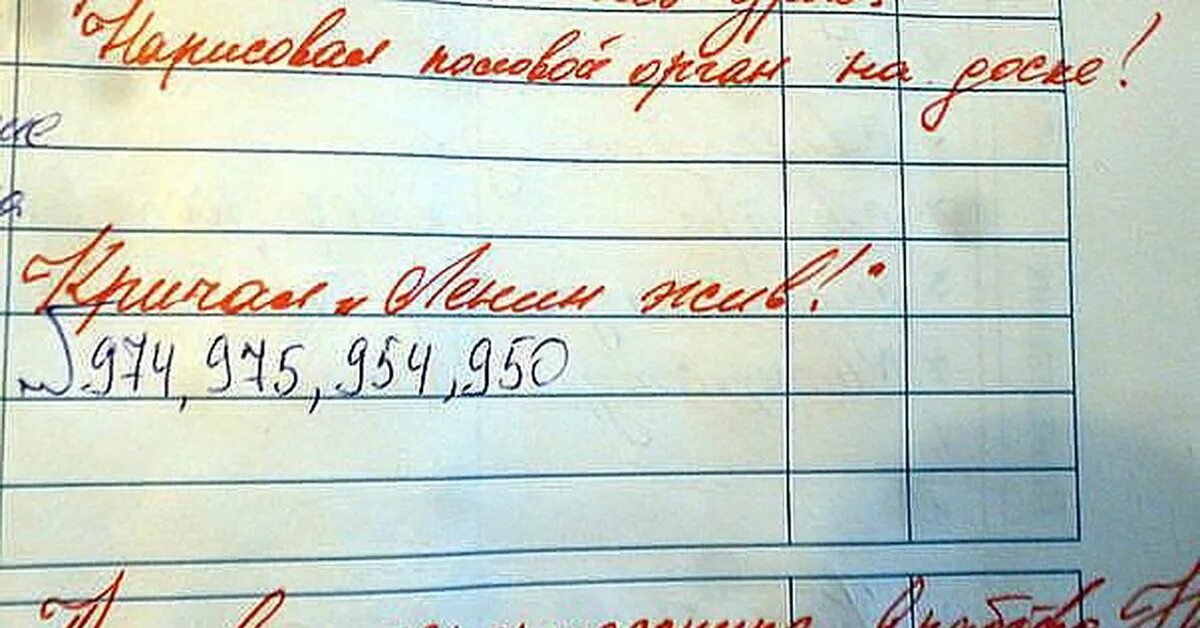 Нарисовал половой орган на доске!
ие
я
Кричал „Ленин жив!"
974, 975, 954, 950